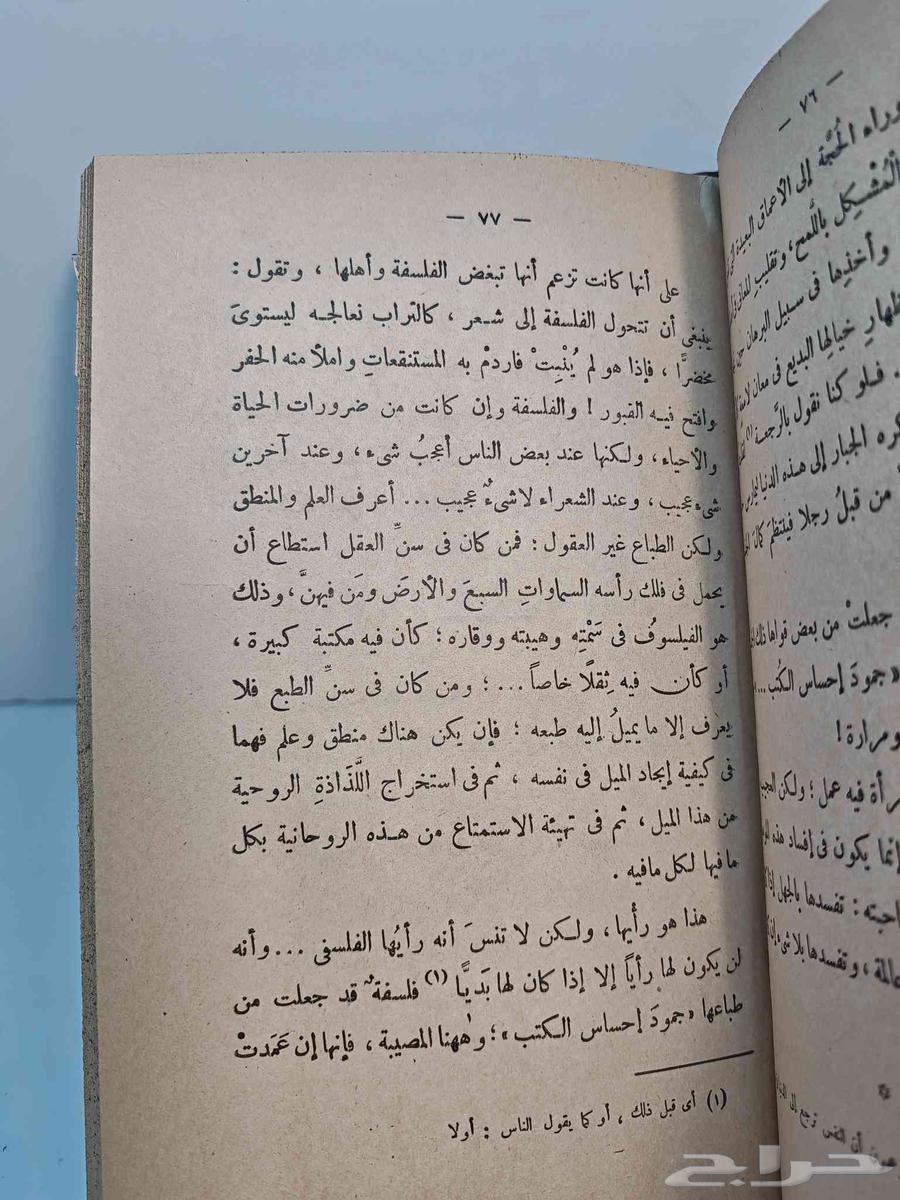 — ٧٦ —
وراء الحُجَّة إلى الأعماق البعيدة
الْمُشْكِل باللَّمح، وتقليب
وأخذِها فى سبيل البرهان
خيالِها البديع فى معان
. فـلو كنا نقول بالرَّجعـة (١)
الجبار إلى هـذه الدنيا
من قبلُ رجلا فينتظمَ
جعلتْ من بعض قواها
«جمودَ إحساس الـكتب...
ومرارة!
فيه عمل؛ ولكن
إنما يكون فى إفساد هذه
: تفسدها بالجهل
، وتفسدها
— ٧٧ —
على أنها كانت تزعم أنها تبغض الفلسفة وأهلها ، وتقول :
ينبغى أن تتحول الفلسفة إلى شـعر ، كالتراب نعالجـه ليستوىَ
مخضراً ، فإذا هو لم يُنْبِتْ فاردمْ به المستنقعاتِ واملأ منه الحفر
وافتح فيـه القبور ! والفلسفة وإن كانت من ضرورات الحياة
والأحياء، ولـكنها عند بعض الناس أعجبُ شىء ، وعند آخرين
شىء عجيب ، وعند الشعراء لاشىءٌ عجيب ... أعرف العلم والمنطق
ولكن الطباع غير العقول : فمن كان فى سنِّ العقل استطاع أن
يحمل فى فلك رأسه السماواتِ السبعَ والأرضَ ومَن فيهنَّ، وذلك
هو الفيلسوفُ فى سَمْتِه وهيبته ووقاره ؛ كأن فيه مكتبة كبيرة ،
أو كأن فيه ثِقلًا خاصاً ... ؛ ومن كان فى سنِّ الطبع فلا
يعرف إلا ما يميلُ إليه طبعه ؛ فإن يكن هناك منطق وعلم فهما
فى كيفية إيجاد الميل فى نفسه ، ثم فى استخراج اللَّذَاذةِ الروحية
من هذا الميل ، ثم فى تهيئة الاستمتاع من هـذه الروحانية بكل
مافيها لكل مافيه .
هذا هو رأْيها ، ولـكن لا تنسَ أنه رأيُها الفلسفى ... وأنه
لن يكون لها رأياً إلا إذا كان لها بَدِيًّا (١) فلسفةٌ قد جعلت من
طباعها «جمودَ إحساس الـكتب»؛ وهٰهنا المصيبة ، فإنها إن عَمَدتْ
(١) أى قبل ذلك ، أو كما يقول الناس : أولا
حراج